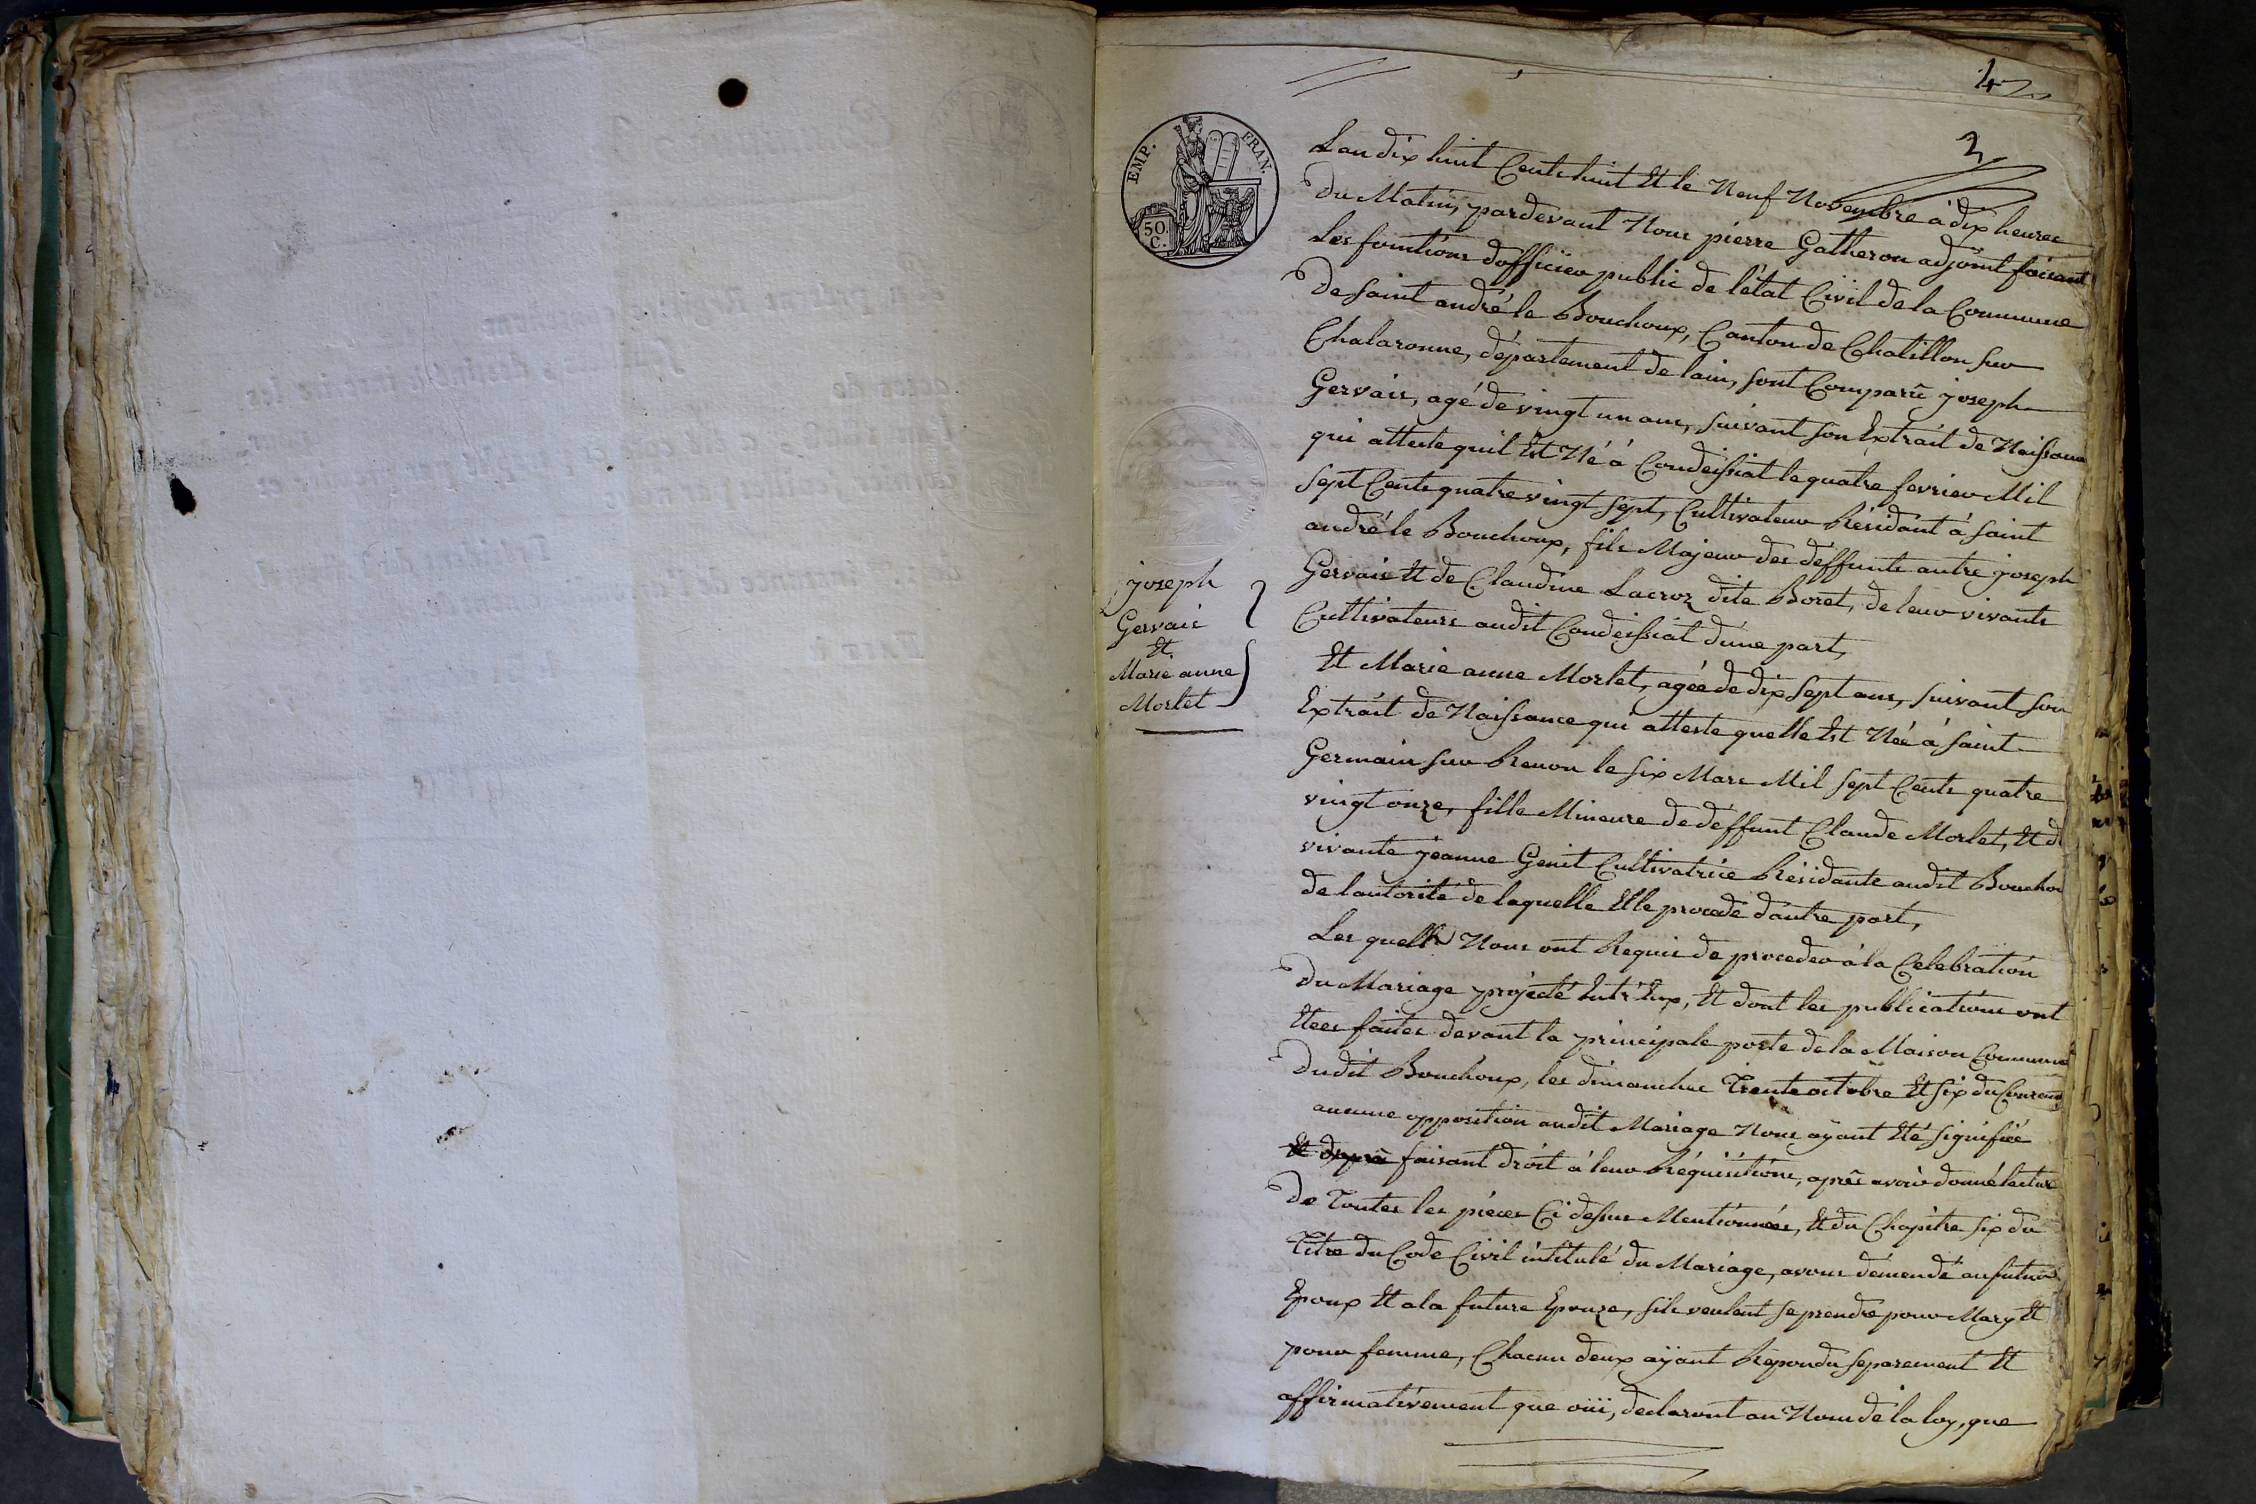 4
2
EMP. FRAN.
50.
C.
Lan dix huit Cents huit Et le Neuf Novembre à dix heures
du Matin, pardevant Nous pierre Gatheron adjoint faisant
Les fonctions dofficier public de létat Civil de la Commune
de saint andré le Bouchoux, Canton de Chatillon sur
Chalaronne, département de lain, sont Comparû joseph
Gervais, agé de vingt un ans, suivant son Extrait de Naissance
qui atteste quil Est Né à Condeissiat le quatre fevrier Mil
sept Cents quatre vingt sept, Cultivateur Résidant à saint
andré le Bouchoux, fils Majeur des déffunts autre joseph
Gervais Et de Claudine Lacroz dite Boret, de leur vivants
Cultivateurs audit Condeissiat dune part,
Et Marie anne Morlet, agée de dix sept ans, suivant son
Extrait de Naissance qui atteste quelle Est Née à saint
Germain sur Renon le six Mars Mil sept Cents quatre
vingt onze, fille Mineure de déffunt Claude Morlet, Et d
vivante jeanne Genit Cultivatrice Résidante audit Bouchou
de lautorité de laquelle Elle procede dautre part,
Les quels Nous ont Requis de proceder à la Celebration
du Mariage projecté Entr'Eux, Et dont les publications ont
Etees faites devant la principale porte de la Maison Commune
dudit Bouchoux, les dimanches Trente octobre Et six du Courant
aucune opposition audit Mariage Nous aÿant Eté signifiée
faisant droit à leur Réquisitions, après avoir donné lecture
de Toutes les piéces Ci dessus Mentionnées, Et du Chapitre six du
Titre du Code Civil intitulé du Mariage, avons démendé au futur
Epoux Et a la future Epouze, sils veulent se prendre pour Mary Et
pour femme, Chacun deux aÿant Répondu separement Et
affirmativement que oüi, declaront au Nom de la loy, que
joseph
Gervais
Et
Marie anne
Morlet